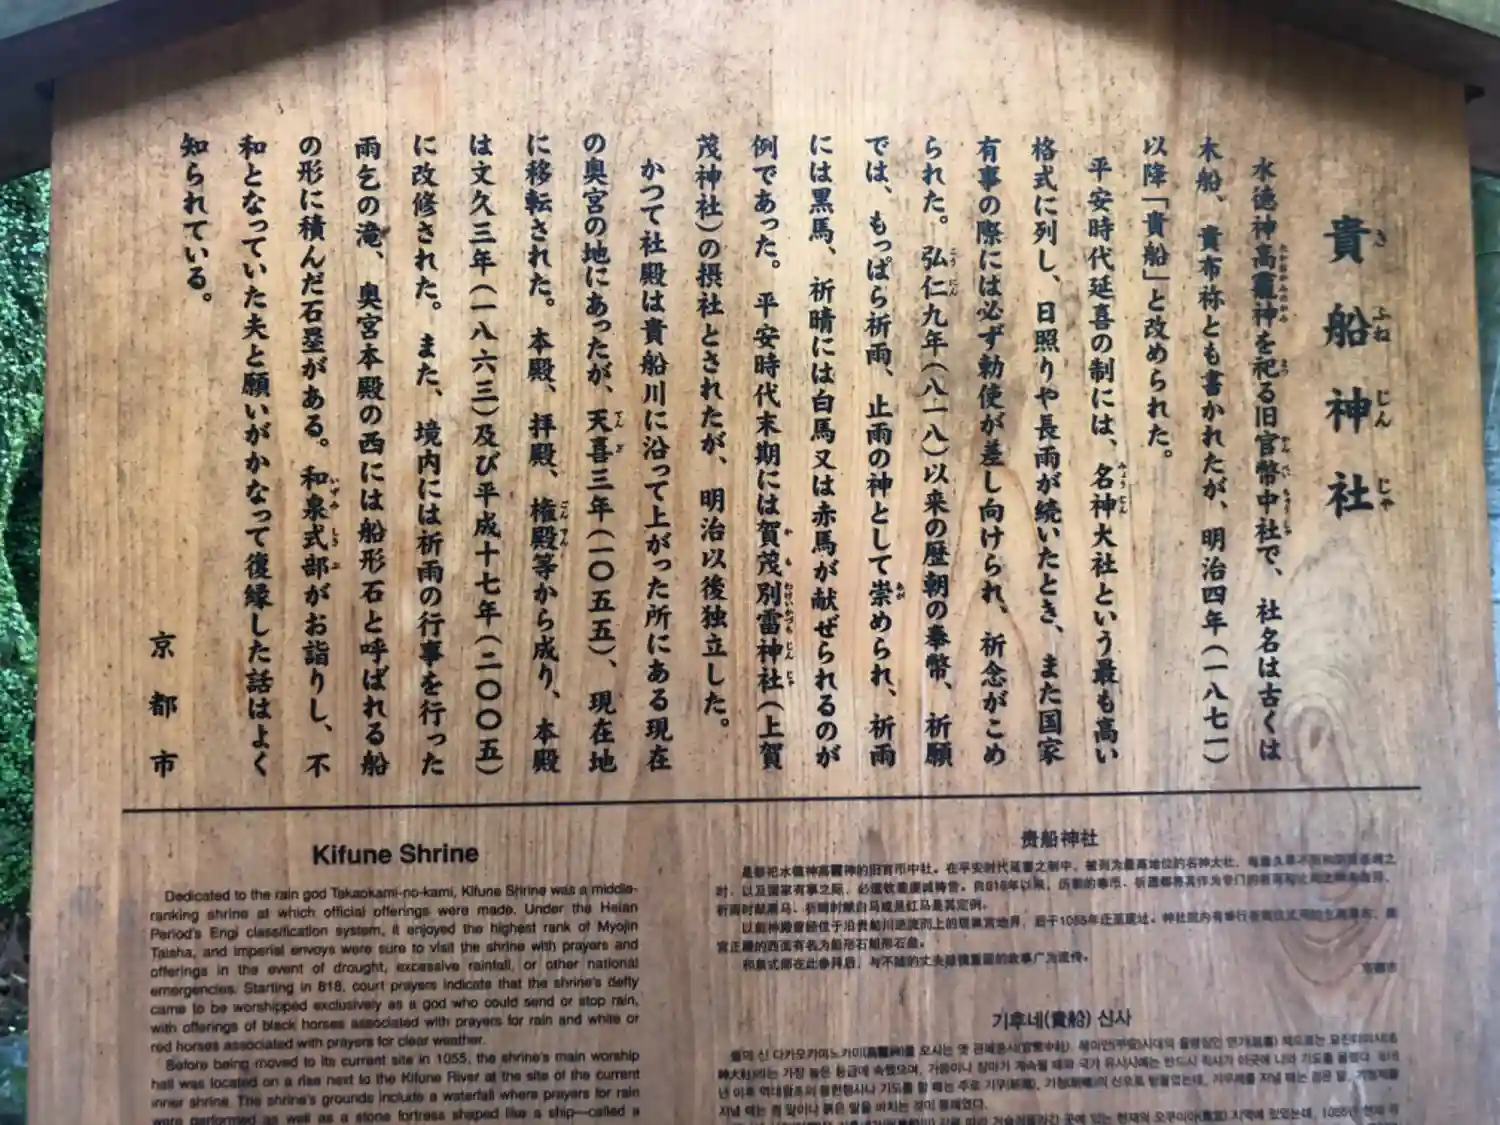 貴船神社
水徳神高龗神を祀る旧官幣中社で、社名は古くは
木船、貴布祢とも書かれたが、明治四年（一八七一）
以降「貴船」と改められた。
平安時代延喜の制には、名神大社という最も高い
格式に列し、日照りや長雨が続いたとき、また国家
有事の際には必ず勅使が差し向けられ、祈念がこめ
られた。弘仁九年（八一八）以来の歴朝の奉幣、祈願
では、もっぱら祈雨、止雨の神として崇められ、祈雨
には黒馬、祈晴には白馬又は赤馬が献ぜられるのが
例であった。平安時代末期には賀茂別雷神社（上賀
茂神社）の摂社とされたが、明治以後独立した。
かつて社殿は貴船川に沿って上がった所にある現在
の奥宮の地にあったが、天喜三年（一〇五五）、現在地
に移転された。本殿、拝殿、権殿等から成り、本殿
は文久三年（一八六三）及び平成十七年（二〇〇五）
に改修された。また、境内には祈雨の行事を行った
雨乞の滝、奥宮本殿の西には船形石と呼ばれる船
の形に積んだ石塁がある。和泉式部がお詣りし、不
和となっていた夫と願いがかなって復縁した話はよく
知られている。
京都市
Kifune Shrine
Dedicated to the rain god Takaokami-no-kami, Kifune Shrine was a middle-
ranking shrine at which official offerings were made. Under the Heian
Period's Engi classification system, it enjoyed the highest rank of Myojin
Taisha, and imperial envoys were sure to visit the shrine with prayers and
offerings in the event of drought, excessive rainfall, or other national
emergencies. Starting in 818, court prayers indicate that the shrine's deity
came to be worshipped exclusively as a god who could send or stop rain,
with offerings of black horses associated with prayers for rain and white or
red horses associated with prayers for clear weather.
Before being moved to its current site in 1055, the shrine's main worship
hall was located on a rise next to the Kifune River at the site of the current
inner shrine. The shrine's grounds include a waterfall where prayers for rain
were performed as well as a stone fortress shaped like a ship—called a
贵船神社
是祭祀水德神高龗神的旧官币中社。在平安时代延喜之制中，被列为最高地位的名神大社，
时，以及国家有事之际，必遣敕使虔诚祷告。自818年以来，历朝的奉币、祈愿都将其作为专门的
祈雨时献黑马、祈晴时献白马或是红马是其定例。
以前神殿曾经位于沿贵船川逆流而上的现奥宫地界，后于1055年迁至现址。神社院内有
宫正殿的西面有名为船形石
和泉式部在此参拜后，与不睦的丈夫破镜重圆的故事广为流传。
京都市
기후네(貴船) 신사